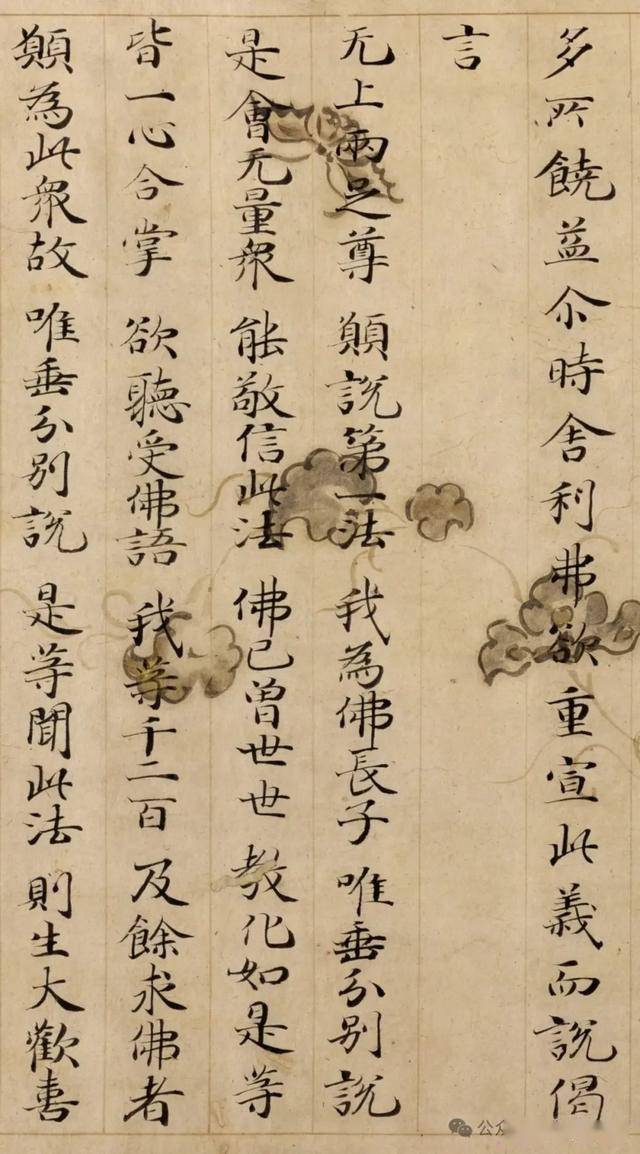 多所饒益尒時舍利弗欲重宣此義而說偈
言
无上兩足尊 願說第一法 我為佛長子 唯垂分別說
是會无量眾 能敬信此法 佛已曾世世 教化如是等
皆一心合掌 欲聽受佛語 我等千二百 及餘求佛者
願為此眾故 唯垂分別說 是等聞此法 則生大歡喜
公众